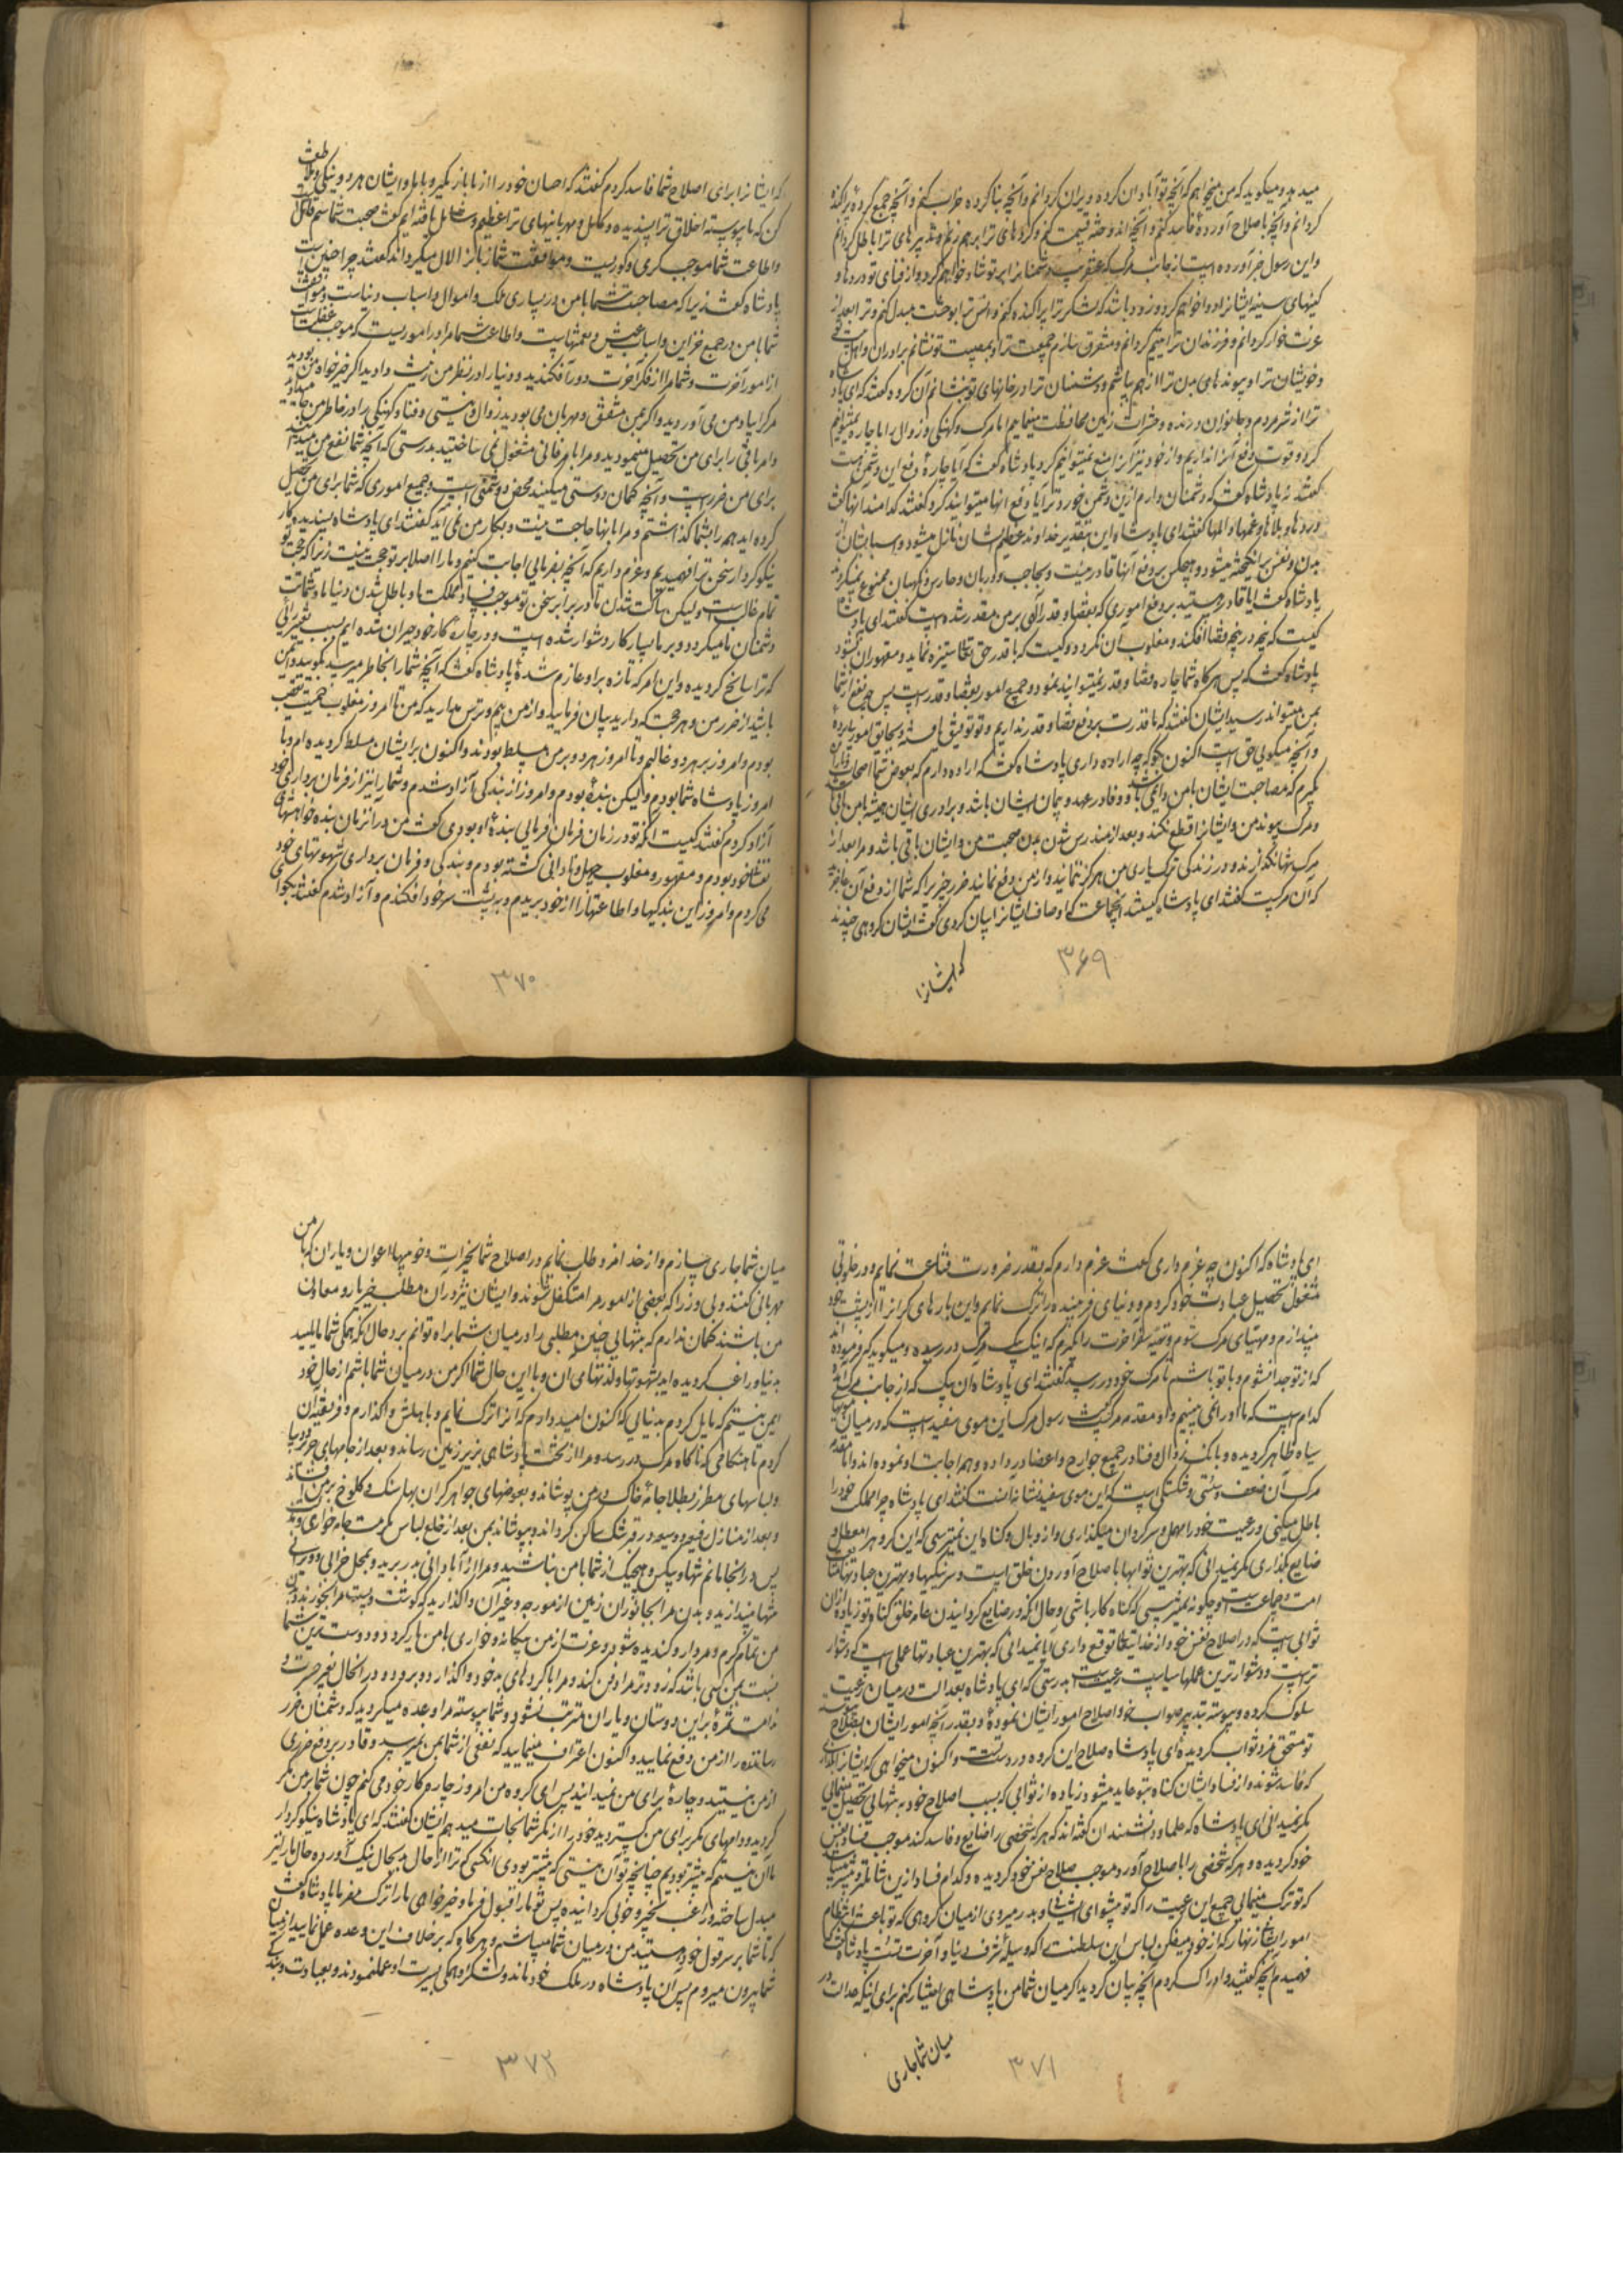 میدهد و میکوید که من میخواهم که آنچه تو آبادان کرده ویران کردانم و آنچه بنا کرده خراب کنم و آنچه جمع کردهٔ پراکنده
کردانم و آنچه باصلاح آوردهٔ فاسد کنم و آنچه اندوخته قسمت کنم و کردهای ترا برهم زنم و تدبیرهای ترا باطل کردانم
و این رسول خبر آورده است از جانب مرک که عنقریب دشمنانرا بر تو شاد خواهم کرد و از فنای تو دردها و
کینهای سینه ایشانرا دوا خواهم کرد و زود باشد که لشکر ترا پراکنده کنم و انس ترا بوحشت مبدل کنم و ترا بعد از
عزت خوار کردانم و فرزندان ترا یتیم کردانم و متفرق سازم جمعیت ترا و بمصیبت تو نشانم برادران و اهل بیت
و خویشان ترا و پیوندهای بدن ترا از هم بپاشم و دشمنان ترا در خانهای تو بنشانم آن کروه کفتند که ای پادشاه
ترا از شر مردم و جانوران درنده و حشرات زمین محافظت مینماییم اما مرک و کهنکی و زوال را ما چاره نمیتوانیم
کرد و قوت دفع آنرا نداریم و از خود نیز آنرا منع نمیتوانیم کرد پادشاه کفت که آیا چارهٔ دفع این دشمن هست
کفتند نه پادشاه کفت که دشمنان دارم ازین دشمن خوردتر آیا دفع آنها میتوانید کرد کفتند کدامند آنها کفت
دردها و بلاها و غمها و المها کفتند ای پادشاه این بتقدیر خداوند عظیم الشان نازل میشود و اسباب آن از
بدن و نفس برانکیخته میشود و هیچکس بر دفع آنها قادر نیست و بحاجب و دربان و حارس و نکهبان ممنوع نمیکردند
پادشاه کفت آیا قادر هستید بر دفع اموری که بقضا و قدر الهی بر من مقدر شده است کفتند ای پادشاه
کیست که پنجه در پنجه قضا افکند و مغلوب آن نکردد و کیست که با قدر حق تعالی ستیزه نماید و مقهور آن نشود
پادشاه کفت که پس هرکاه شما چاره قضا و قدر نمیتوانید نمود و جمیع امور بقضا و قدر است پس چه نفع از شما
بمن میتواند رسید ایشان کفتند که ما قدرت بر دفع قضا و قدر نداریم و تو توفیق یافتهٔ و بحقایق امور پی بردهٔ
و آنچه میکویی حق است اکنون بکو که چه اراده داری پادشاه کفت که اراده دارم که بعوض شما اصحاب و یاران
بکیرم که مصاحبت ایشان با من دایمی باشد و وفا در عهد و پیمان ایشان باشد و برادری ایشان همیشه با من باقی
و مرک پیوند من و ایشانرا قطع نکند و بعد از مندرس شدن بدن صحبت من و ایشان باقی باشد و مرا بعد از
مرک تنها نکذارند و در زندکی ترک یاری من هرکز ننمایند و از من دفع نمایند ضرر چیزیرا که شما از دفع آن عاجزید
که آن مرکست کفتند ای پادشاه کیستند آنجماعت که اوصاف ایشانرا بیان کردی کفت ایشان کروهی چندند
که ایشانرا
۳۶۹
که ایشانرا برای اصلاح شما فاسد کردم کفتند که احسان خود را از ما باز مکیر و با ما و ایشان هر دو نیکی و ملاطفت
کن که ما پیوسته اخلاق ترا پسندیده و کامل و مهربانیهای ترا عظیم و شامل یافته‌ایم کفت صحبت شما سم قاتل
و اطاعت شما موجب کری و کوریست و موافقت شما زبانرا لال میکرداند کفتند چرا چنین است
پادشاه کفت زیرا که مصاحبت شما با من در بسیاری ملک و اموال و اسباب دنیاست و موافقت
شما با من در جمع خزاین و اسباب عیش و نعمتهاست و اطاعت شما مرا در امور‌یست که موجب غفلت است
از امور آخرت و شما مرا از فکر آخرت دور افکندید و دنیا را در نظر من زینت دادید اکر خیرخواه من بودید
مرک را یاد من می آوردید و اکر بمن مشفق و مهربان می بودید زوال و نیستی و فنا و کهنکی را در خاطر من جا میدادید
و امر باقی را برای من تحصیل مینمودید و مرا بامر فانی مشغول نمی ساختید بدرستی که آنچه شما نفع من میدانید
برای من ضرر است و آنچه کمان دوستی میکنید محض دشمنی است و جمیع اموری که شما برای من تحصیل
کرده اید همه را بشما کذاشتم و مرا بآنها حاجت نیست و بکار من نمی آید کفتند ای پادشاه پسندیده کار
نیکو کردار سخن ترا فهمیدیم و عزم داریم که آنچه بفرمایی اجابت کنیم و ما را اصلا بر تو حجت نیست زیرا که حجت تو
تمام غالب است ولیکن ساکت شدن ما در برابر سخن تو موجب فساد مملکت ما و باطل شدن دنیا ما و شماتت
دشمنان ما میکردد و بر ما بسیار کار دشوار شده است و در چارهٔ کار خود حیران شده ایم بسبب تغییر رایی
که ترا سانح کردیده و این امر که تازه برای او عازم شدهٔ پادشاه کفت که آنچه شما را بخاطر میرسد بکویید و ایمن
باشید از ضرر من و هر حجت که دارید بیان فرمایید و از من بیم و ترس مدارید که من تا امروز مغلوب حمیت و تعصب
بودم و امروز بر هر دو غالبم و تا امروز هر دو بر من مسلط بودند و اکنون بر ایشان مسلط کردیده ام و تا
امروز پادشاه شما بودم ولیکن بندهٔ بودم و امروز از بندکی آزاد شدم و شما را نیز از فرمان برداری خود
آزاد کردم کفتند کیست آنکه تو در زمان فرمان فرمایی بندهٔ او بودی کفت من در آنزمان بنده خواهشهای
نفس خود بودم و مقهور و مغلوب جهل و نادانی کشته بودم و بندکی و فرمان برداری شهوتهای خود
می کردم و امروز این بندکیها و اطاعتها را از خود بریدم و به پشت سر خود افکندم و آزاد شدم کفتند بکو
۳۷۰
ای پادشاه که اکنون چه عزم داری کفت عزم دارم که بقدر ضرورت قناعت نمایم و در خلوتی
مشغول تحصیل عبادت خود کردم و دنیای فریبنده را ترک نمایم و این بارهای کرانرا از پشت خود
بیندازم و مهیای مرک شوم و تهیه سفر آخرت را بکیرم که اینک پیک مرک در رسیده و میکوید که فرموده اند
که از تو جدا نشوم و با تو باشم تا مرک خود در رسد کفتند ای پادشاه آن پیک که از جانب مرک آمده
کدام است که ما او را نمی بینیم و او مقدمه مرک است کفت رسول مرک این موی سفید است که در میان موهای
سیاه ظاهر کردیده و بانک زوال و فنا در جمیع جوارح و اعضا در داده و همه اجابت او نموده اند و اما مقدمه
مرک آن ضعف و سستی و شکستکی است که این موی سفید نشانه آنست کفتند ای پادشاه چرا مملکت خود را
باطل میکنی و رعیت خود را مهمل و سرکردان میکذاری و از وبال و کناه این نمیترسی که این کروه را معطل و
ضایع بکذاری مکر نمیدانی که بهترین ثوابها باصلاح آوردن خلق است و سر نیکیها و بهترین عبادتها متابعت
امت و جماعت است و چکونه نمیترسی که کناه کار باشی و حال آنکه در ضایع کردانیدن عامه خلق کناه تو زیاده از آن
ثوابی است که در اصلاح نفس خود از خدایتعالی توقع داری آیا نمیدانی که بهترین عبادتها عملی است که دشوار
تر است و دشوارترین عملها سیاست رعیت است بدرستی که ای پادشاه بعدالت در میان رعیت
سلوک کرده و پیوسته بتدبیر صواب خود اصلاح امور ایشان نمودهٔ و بقدر آنچه امور ایشان بصلاح پیوسته
تو مستحق مزد و ثواب کردیده ای پادشاه صلاح این کروه در دست تست و اکنون میخواهی که ایشانرا واکذاری
که فاسد شوند و از فساد ایشان کناه بتو عاید میشود زیاده از ثوابی که بسبب اصلاح خود به تنهایی تحصیل مینمایی
مکر نمیدانی ای پادشاه که علما و دانشمندان کفته اند که هر که شخصی را ضایع و فاسد کند موجب فساد نفس
خود کردیده و هر که شخصی را باصلاح آورد موجب صلاح نفس خود کردیده و کدام فساد ازین شامل‌تر و بیشتر میباشد
که تو ترک مینمایی جمیع این رعیت را که تو پیشوای ایشانی و بدر میروی از میان کروهی که تو باعث انتظام
امور ایشانی زنهار که از خود میفکن لباس این سلطنت را که وسیلهٔ شرف دنیا و آخرت تست پادشاه کفت
فهمیدم آنچه کفتید و ادراک کردم آنچه بیان کردید اکر میان شما من پادشاهی اختیار کنم برای اینکه عدالت در
میان شما جاری
۳۷۱
میان شما جاری سازم و از خدا مزد طلب نمایم در اصلاح شما بخیرات و خوبیها اعوان و یاران که با من
مهربانی کنند و بی وزرا که بعضی از امور مرا متکفل شوند و ایشان نیز در آن مطلب خیر یار و معاون
من باشند کمان ندارم که بتنهایی چنین مطلبی را در میان شما براه توانم برد و حال آنکه همکی شما مایلید
بدنیا و راغب کردیده اید بشهوتها و لذتهای آن و با این حال شما اکر من در میان شما باشم از حال خود
ایمن نیستم که مایل کردم بدنیایی که اکنون امید دارم که آنرا ترک نمایم و باهلش واکذارم و فریفته آن
کردم تا هنکامی که ناکاه مرک در رسد و مرا از تخت پادشاهی بزیر زمین رساند و بعد از جامهای حریر و دیبا
و لباسهای مطرز بطلا جامهٔ خاک در من پوشاند و بعوضهای جواهر کران بها سنک و کلوخ بر من افشاند
و بعد از منازل رفیع و وسیع در قبر تنک ساکن کرداند و بپوشاند بمن بعد از خلع لباس مکرمت جامه خواری
پس در آنجا بمانم تنها و بیکس و هیچیک از شما با من نباشید و مرا از آبادانی بدر برید و بمحل خرابی و ویرانی
تنها بیندازید و بدن مرا بجانوران زمین از مور چه و غیر آن واکذارید که کوشت و پوست مرا بخورند و بدن
من تمام کرم و مردار و کندیده شود و عزت از من بیکانه و خواری با من یار کردد و دوست ترین شما
نسبت بمن کسی باشد که زودتر مرا دفن کند و مرا با کردهای بد خود واکذارد و برود و در آنحال بغیر حسرت و
ندامت ثمرهٔ بر این دوستان و یاران مترتب نشود و شما پیوسته مرا وعده میکردید که دشمنان ضرر
رساننده را از من دفع نمایید و اکنون اعتراف مینمایید که نفعی از شما بمن نمیرسد و قادر بر دفع ضرری
از من نیستید و چارهٔ برای من نمیدانید پس ای کروه من امروز چارهٔ کار خود می کنم چون شما بر من مکر
کردید و دامهای مکر برای من کستردید خود را از مکر شما نجات میدهم ایشان کفتند که ای پادشاه نیکو کردار
ما آن نیستیم که پیشتر بودیم چنانچه تو آن نیستی که پیشتر بودی آنکسی که ترا از حال بد بحال نیک آورده حال ما را نیز
مبدل ساخته و راغب بخیر و خوبی کردانیده پس توبهٔ ما را قبول فرما و خیرخواهی ما را ترک مفرما پادشاه کفت
که تا شما بر سر قول خود هستید من در میان شما میباشم و هر کاه که بر خلاف این وعده عمل نمایید از میان
شما بیرون میروم پس آن پادشاه در ملک خود ماند و لشکر او همکی بسیرت او عمل نمودند و بعبادت و بندکی
۳۷۲